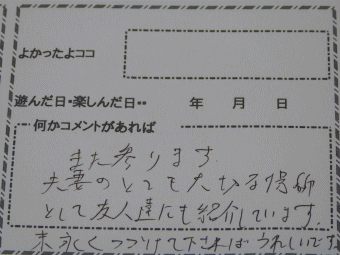 よかったよココ
遊んだ日・楽しんだ日・・ 年 月 日
何かコメントがあれば
また参ります.
夫妻のとても大切な場所
として友人達にも紹介しています.
末永くつづけて下さればうれしいです